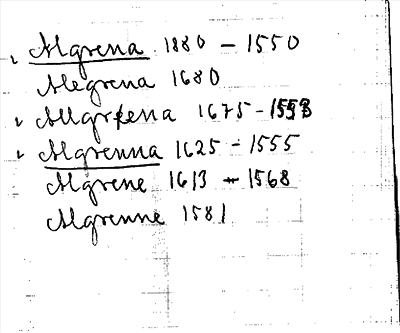 Algrena 1880 - 1550
Alegrena 1680
Allgrena 1675 - 1553
Algrenna 1625 - 1555
Algrene 1613 - 1568
Algrenne 1581